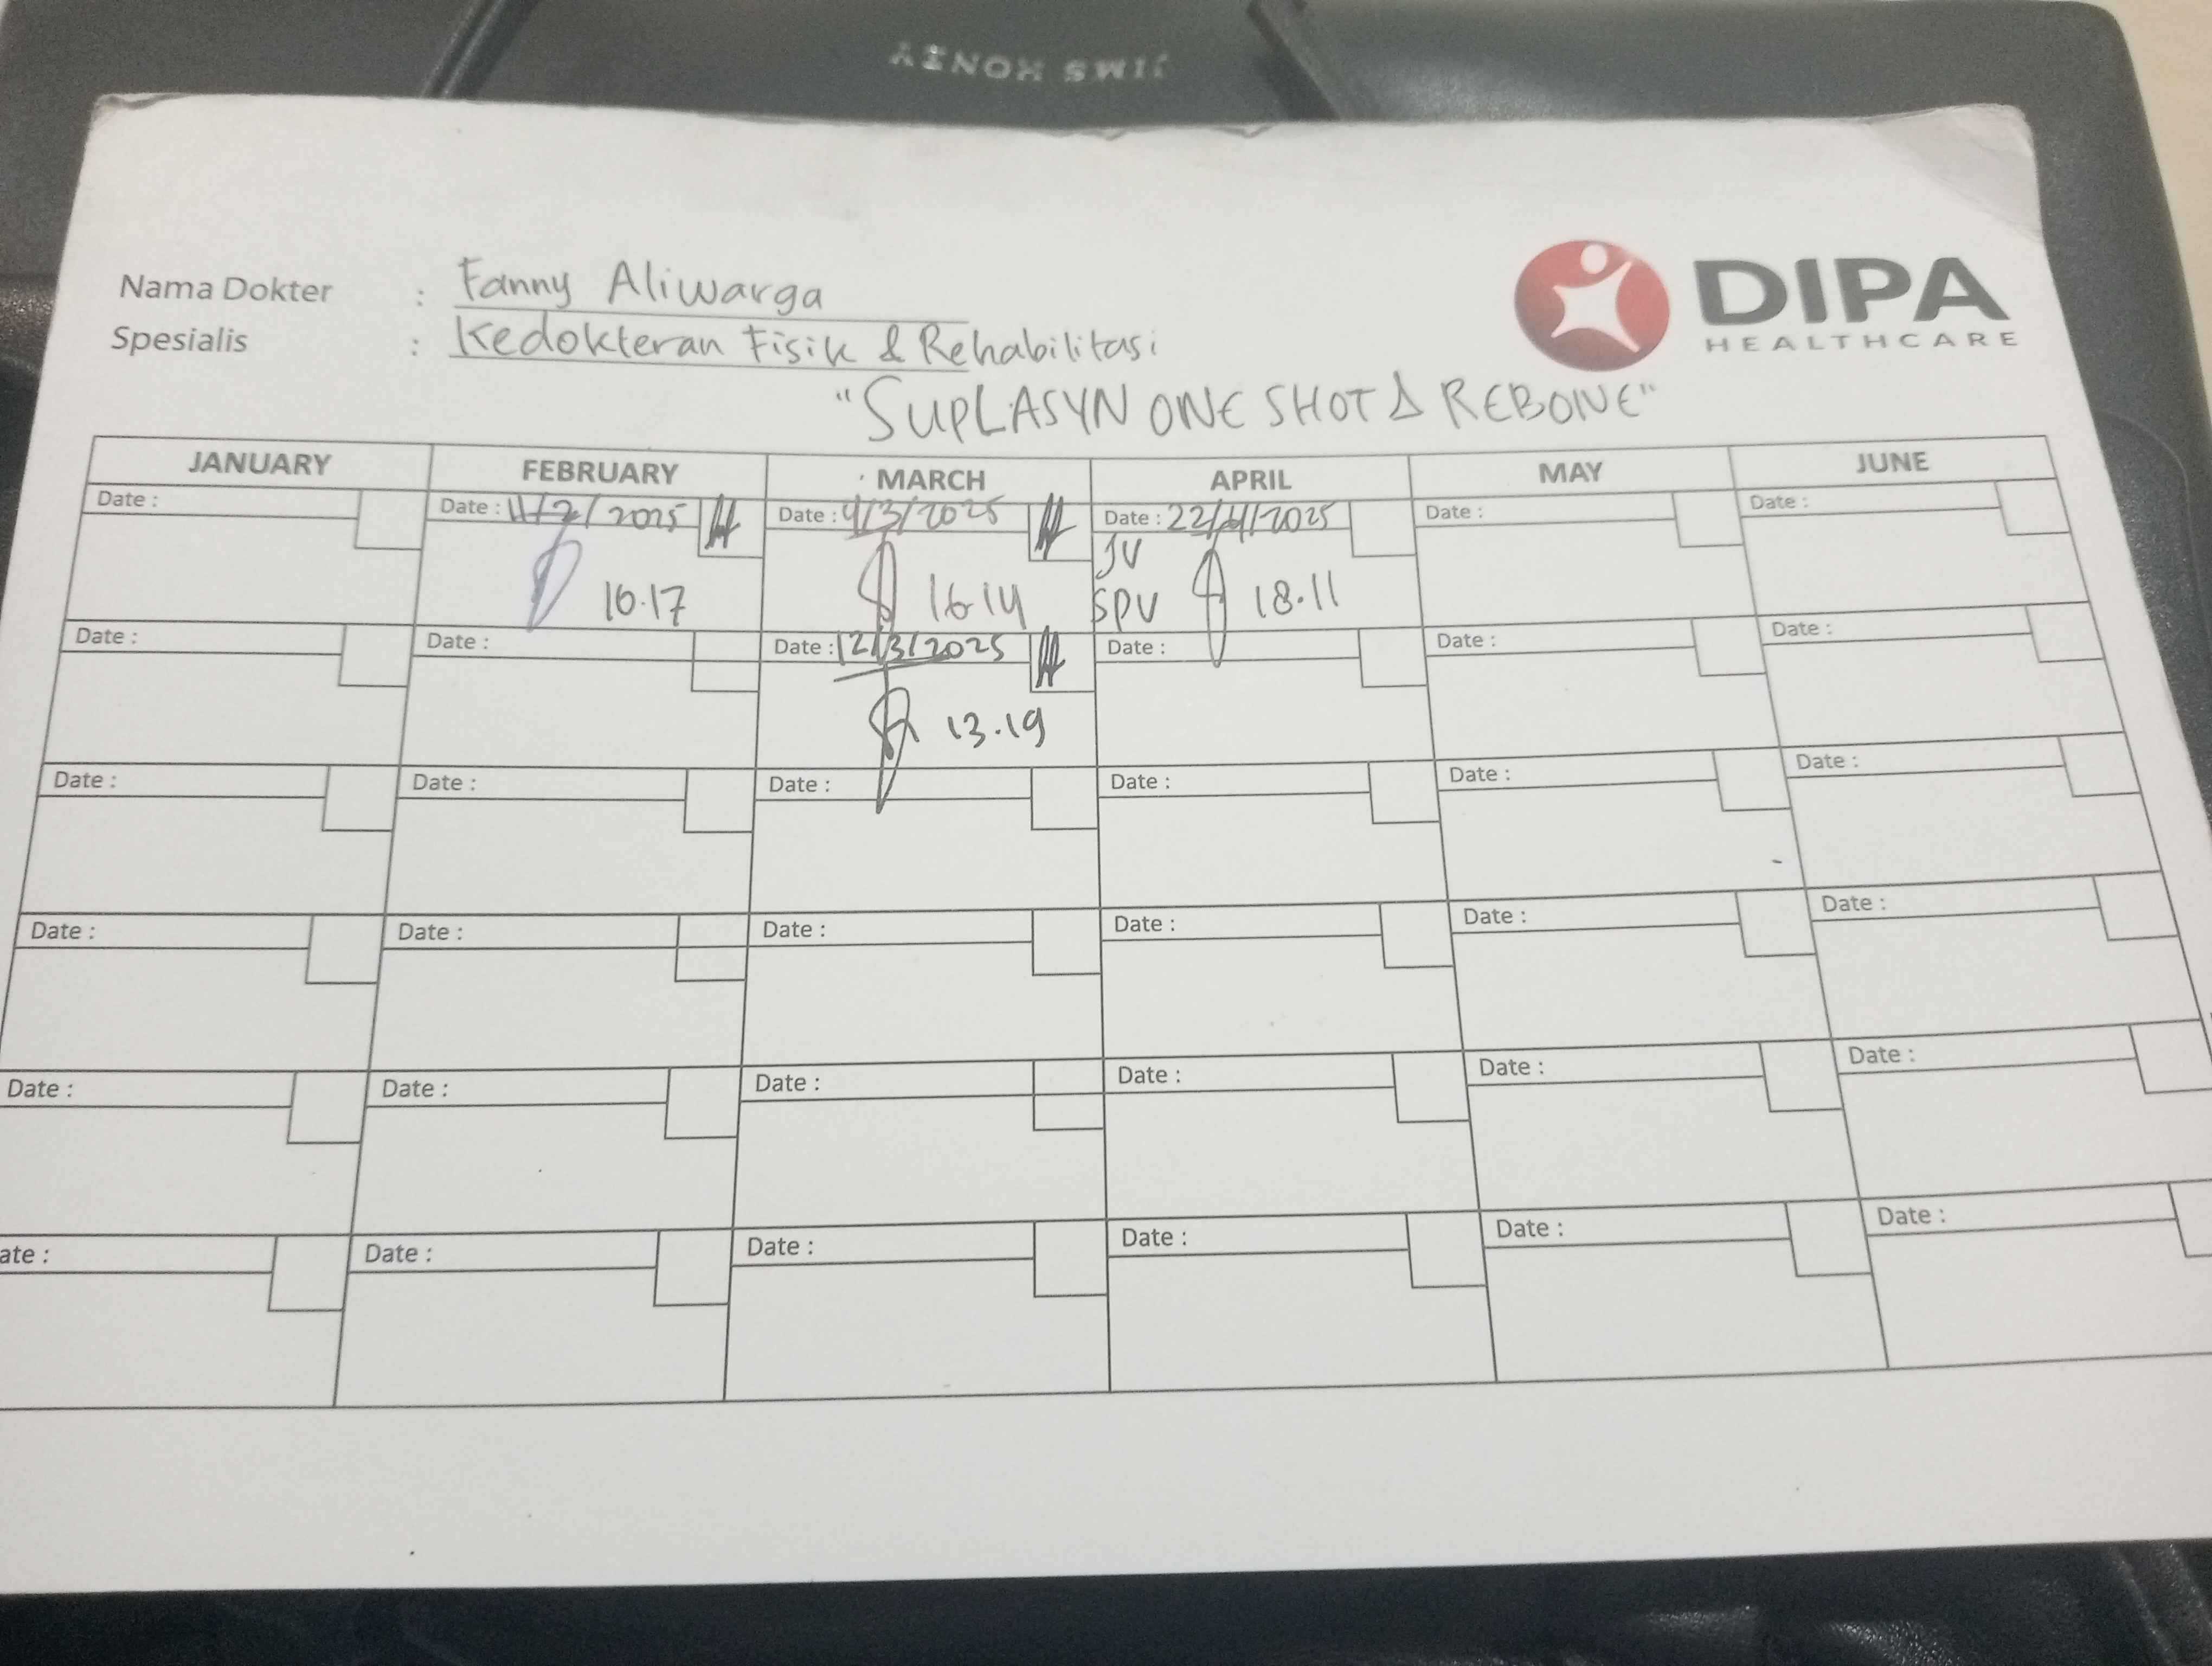 JIMS HONEY
Nama Dokter : Fanny Aliwarga
DIPA
HEALTHCARE
Spesialis : Kedokteran Fisik & Rehabilitasi
"SUPLASYN ONE SHOT & REBONE"
JANUARY FEBRUARY MARCH APRIL MAY JUNE
Date : Date : 11/2/2025 Date : 4/3/2025 Date : 22/4/2025 Date : Date :
JV
16.14 SPV 18.11
Date : Date : Date : 12/3/2025 Date : Date : Date :
13.19
Date : Date : Date : Date : Date : Date :
Date : Date : Date : Date : Date : Date :
Date : Date : Date : Date : Date : Date :
ate : Date : Date : Date : Date : Date :